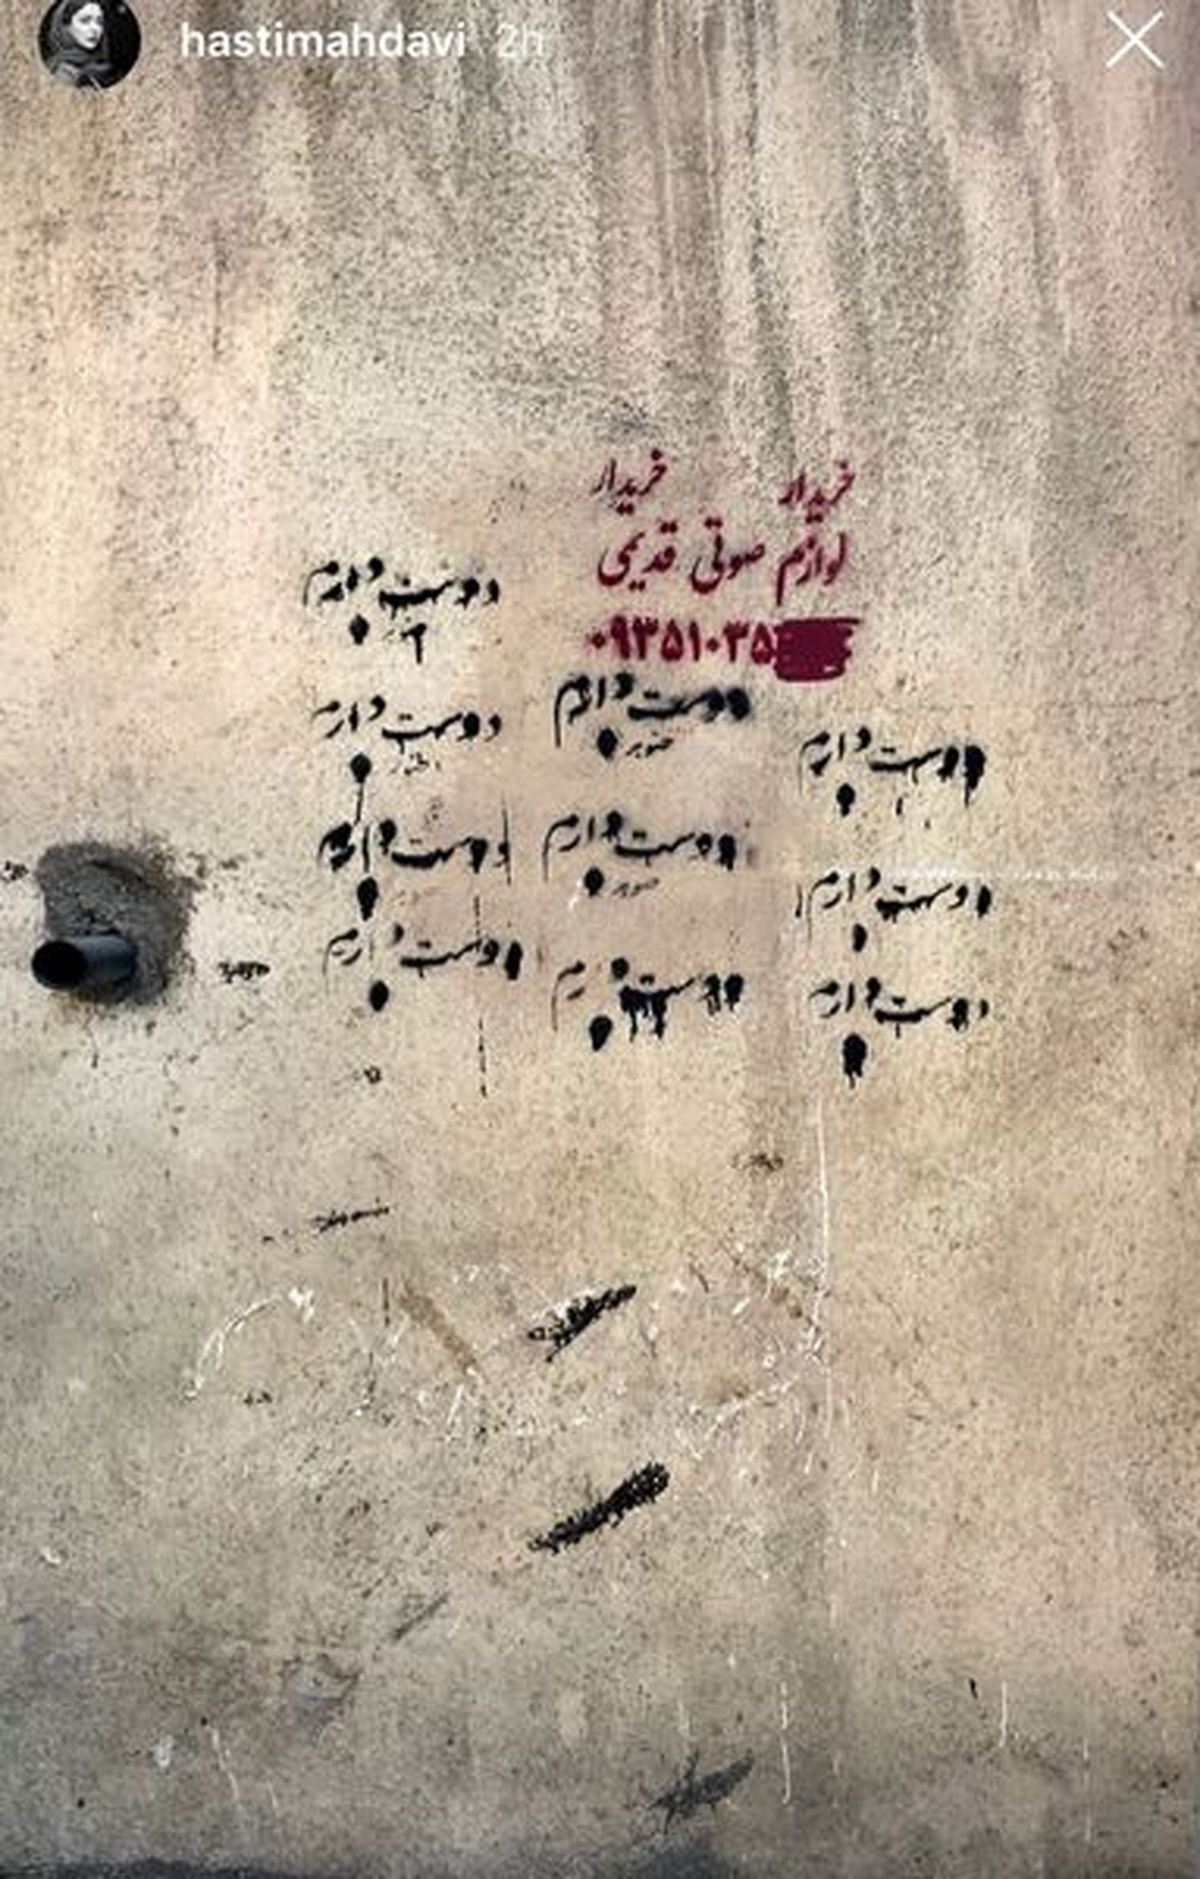 hastimahdavi 2h
خریدار خریدار
لوازم صوتی قدیمی
۰۹۳۵۱۰۳۵
دوست دارم
دوست دارم
دوست دارم
دوست دارم
دوست دارم
دوست دارم
دوست دارم
دوست دارم
دوست دارم
دوست دارم